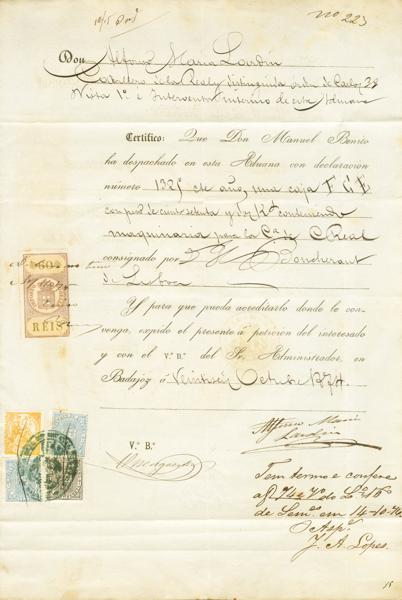 nº 223
Don Alfonso Maria Lardin
Caballero de la Real y distinguida orden de Carlos 3º
Vista 1º é Interventor interino de esta Aduana
Certifico: Que Don Manuel Benito
ha despachado en esta Aduana con declaración
número 1325 de año, una caja F G B
con peso de ciento setenta y dos Kº conteniendo
maquinaria para la Cª de C. Real
consignado por
de Lisboa
60
REIS
Y para que pueda acreditarlo donde le con-
venga, expido el presente á peticion del interesado
y con el V.º B.º del Sr. Administrador, en
Badajoz á Veintiseis Octubre 1874.
Alfonso Maria
Lardin
V.º B.º
Tem termo e confere
a fl 74 e 7º do Lº 16
de Semos em 14-10-76
O Aspe
J. A. Lopes.
15